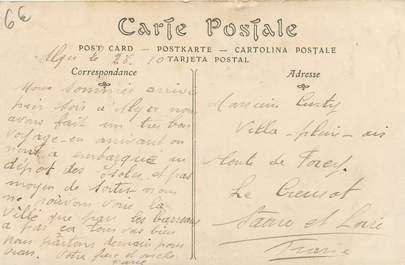 66
Carte Postale
POST CARD - POSTKARTE - CARTOLINA POSTALE
TARJETA POSTAL
Alger le 28. 10
Correspondance
Nous sommes arrivé
hier soir a Alger nous
avons fait un tres bon
voyage en arrivant on
nous a embarqué au
depot des isolés et pas
moyen de sortir nous
ne pouvons voir la
Ville que par les barreaux
a par ça tous vas bien
nous partons demain pour
Oran. Votre frere et oncle
Adresse
Monsieur
Villa plein air
Route de Torcy
Le Creusot
Saone et Loire
France